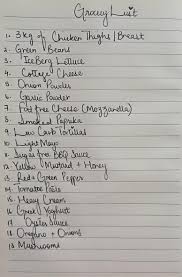 Grocery List
1. 3kg of Chicken Thighs/Breast
2. Green Beans
3. IceBerg Lettuce
4. Cottage Cheese
5. Onion Powder
6. Garlic Powder
7. Fat free Cheese (Mozzarella)
8. Smoked Paprika
9. Low Carb Tortillas
10. Light Mayo
11. Sugar free BBQ Sauce
12. Yellow Mustard + Honey
13. Red + Green Pepper
14. Tomatoe Paste
15. Heavy Cream
16. Greek Yoghurt
17. Oyster Sauce
18. Oregano + Onions
19. Mushrooms